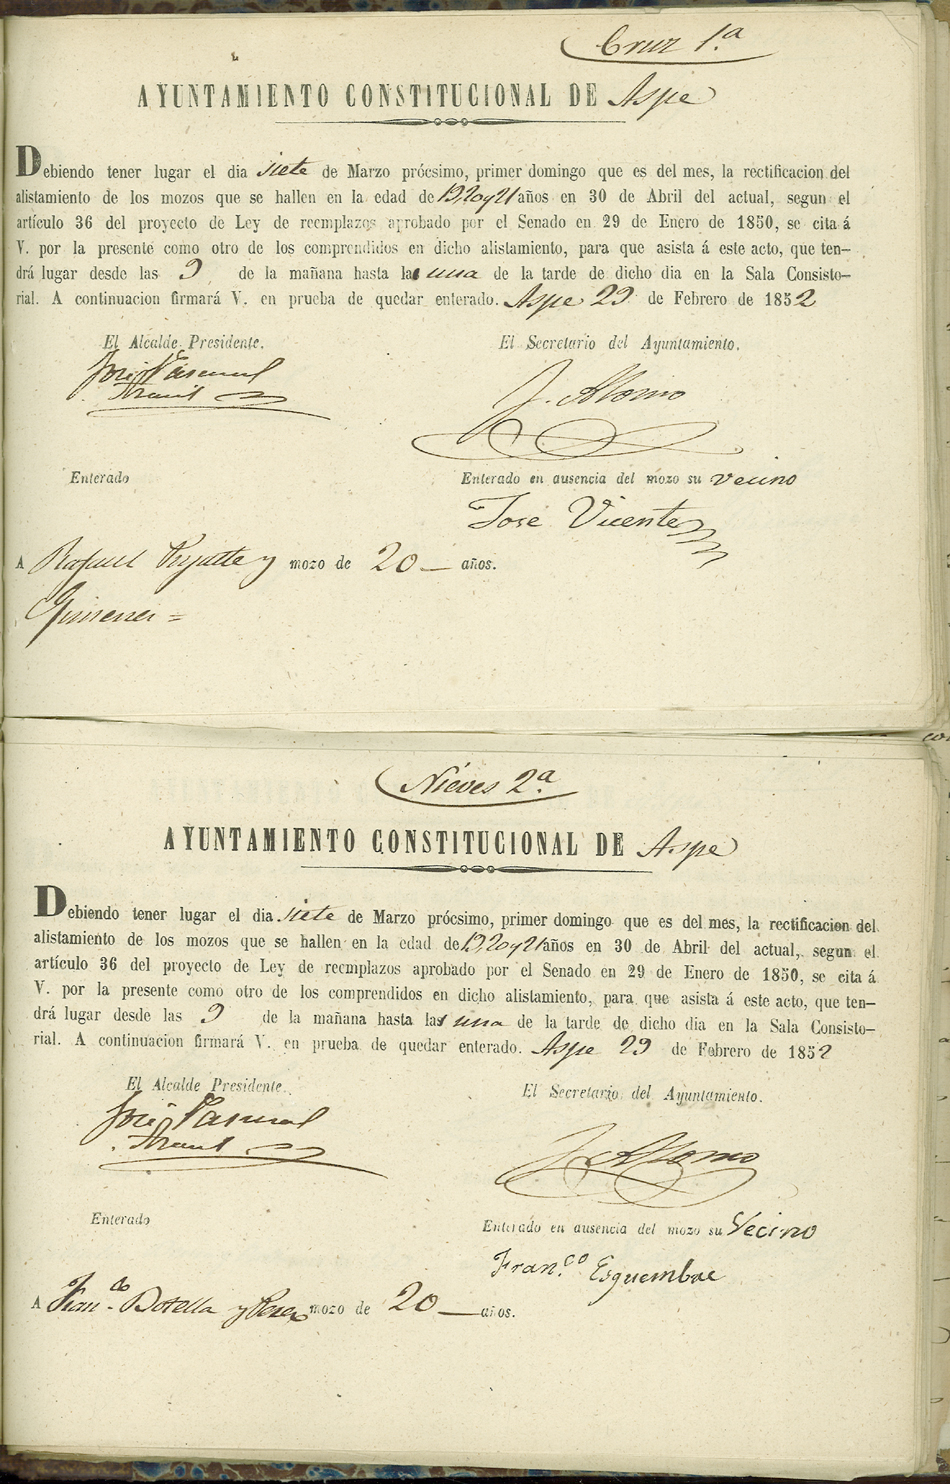 Cruz 1.ª
AYUNTAMIENTO CONSTITUCIONAL DE Aspe
Debiendo tener lugar el dia siete de Marzo prócsimo, primer domingo que es del mes, la rectificacion del
alistamiento de los mozos que se hallen en la edad de 19, 20 y 21 años en 30 de Abril del actual, segun el
artículo 36 del proyecto de Ley de reemplazos aprobado por el Senado en 29 de Enero de 1850, se cita á
V. por la presente como otro de los comprendidos en dicho alistamiento, para que asista á este acto, que ten-
drá lugar desde las 9 de la mañana hasta la una de la tarde de dicho dia en la Sala Consisto-
rial. A continuacion firmará V. en prueba de quedar enterado. Aspe 29 de Febrero de 1852
El Alcalde Presidente. El Secretario del Ayuntamiento.
José Pascual J. Alonso
Enterado Enterado en ausencia del mozo su vecino
Jose Vicente
A Rafael y mozo de 20 años.
Gimenez =
Nieves 2.ª
AYUNTAMIENTO CONSTITUCIONAL DE Aspe
Debiendo tener lugar el dia siete de Marzo prócsimo, primer domingo que es del mes, la rectificacion del
alistamiento de los mozos que se hallen en la edad de 19, 20 y 21 años en 30 de Abril del actual, segun el
artículo 36 del proyecto de Ley de reemplazos aprobado por el Senado en 29 de Enero de 1850, se cita á
V. por la presente como otro de los comprendidos en dicho alistamiento, para que asista á este acto, que ten-
drá lugar desde las 9 de la mañana hasta la una de la tarde de dicho dia en la Sala Consisto-
rial. A continuacion firmará V. en prueba de quedar enterado. Aspe 29 de Febrero de 1852
El Alcalde Presidente. El Secretario del Ayuntamiento.
José Pascual J. Alonso
Enterado Enterado en ausencia del mozo su Vecino
Fran.co Esquembre
A Fran.co Botella y Perez mozo de 20 años.